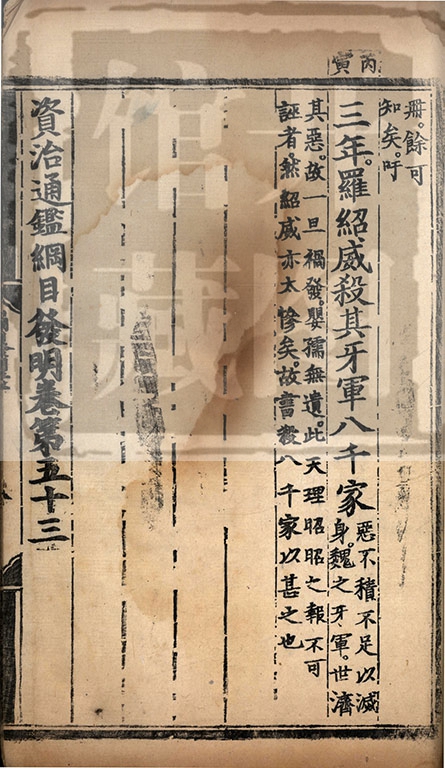 丙寅
冊。餘可
知矣。吁
三年。羅紹威殺其牙軍八千家
惡不積不足以滅
身。魏之牙軍。世濟
其惡。故一旦禍發。嬰孺無遺。此天理昭昭之報不可
誣者。然紹威亦太慘矣。故書殺八千家以甚之也
資治通鑑綱目發明卷第五十三